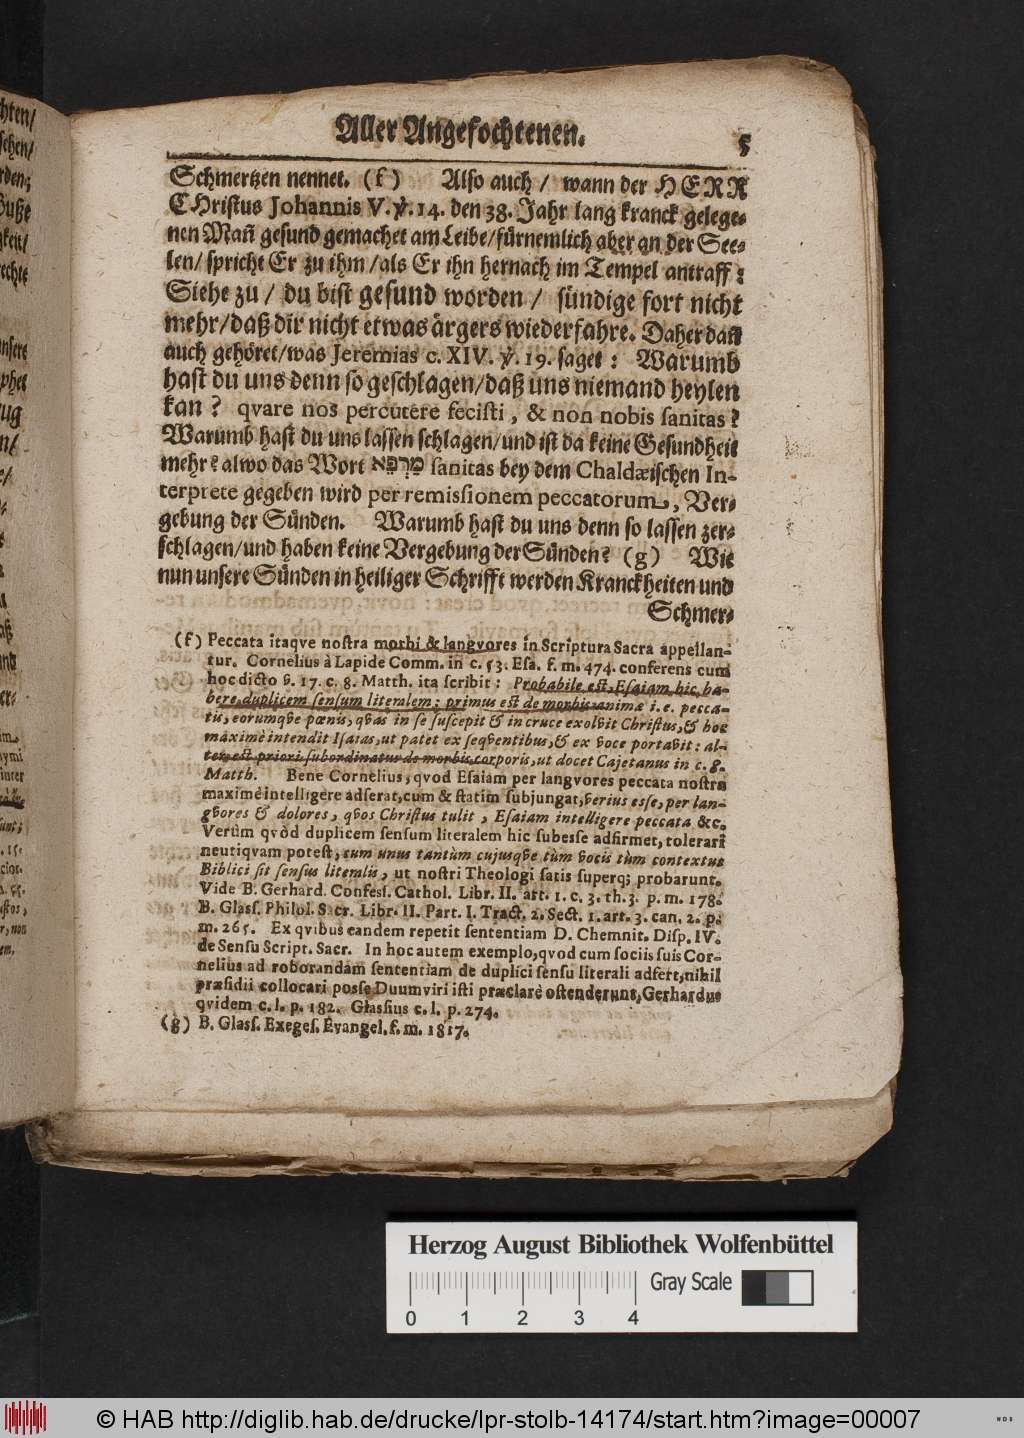 Aller Angefochtenen. 5
Schmertzen nennet. (f) Also auch / wann der HERR
CHristus Johannis V. ꝟ. 14. den 38. Jahr lang kranck gelege-
nen Mañ gesund gemachet am Leibe/fürnemlich aber an der See-
len/ spricht Er zu ihm /als Er ihn hernach im Tempel antraff:
Siehe zu / du bist gesund worden / sündige fort nicht
mehr/daß dir nicht etwas ärgers wiederfahre. Daher dañ
auch gehöret/was Jeremias c. XIV. ꝟ. 19. saget : Warumb
hast du uns denn so geschlagen/daß uns niemand heylen
kan ? qvare nos percutere fecisti , & non nobis sanitas ?
Warumb hast du uns lassen schlagen/und ist da keine Gesundheit
mehr? alwo das Wort מַרְפֵּא sanitas bey dem Chaldæischen In-
terprete gegeben wird per remissionem peccatorum, Ver-
gebung der Sünden. Warumb hast du uns denn so lassen zer-
schlagen/und haben keine Vergebung der Sünden? (g) Wie
nun unsere Sünden in heiliger Schrifft werden Kranckheiten und
Schmer-
(f) Peccata itaqve nostra morbi & langvores in Scriptura Sacra appellan-
tur. Cornelius à Lapide Comm. in c. 53. Esa. f. m. 474. conferens cum
hoc dicto v. 17. c. 8. Matth. ita scribit : Probabile est, Esaiam hic ha-
bere duplicem sensum literalem; primus est de morbis animæ i. e. pecca-
tis, eorumqve pœnis, qvas in se suscepit & in cruce exolvit Christus, & hoc
maximè intendit Isaias, ut patet ex seqventibus, & ex voce portavit: al-
ter est priori subordinatus de morbis corporis, ut docet Cajetanus in c. 8.
Matth. Bene Cornelius, qvod Esaiam per langvores peccata nostra
maximè intelligere adserat, cum & statim subjungat, verius esse, per lan-
gvores & dolores, qvos Christus tulit , Esaiam intelligere peccata &c.
Verùm qvòd duplicem sensum literalem hic subesse adfirmet, tolerari
neutiqvam potest, cum unus tantùm cujusqve tùm vocis tùm contextus
Biblici sit sensus literalis, ut nostri Theologi satis superq; probarunt.
Vide B. Gerhard. Confess. Cathol. Libr. II. art. 1. c. 3. th. 3. p. m. 178.
B. Glass. Philol. Sacr. Libr. II. Part. I. Tract. 2. Sect. 1. art. 3. can. 2. p.
m. 265. Ex qvibus eandem repetit sententiam D. Chemnit. Disp. IV.
de Sensu Script. Sacr. In hoc autem exemplo, qvod cum sociis suis Cor-
nelius ad roborandam sententiam de duplici sensu literali adfert, nihil
præsidii collocari posse Duumviri isti præclarè ostenderunt, Gerhardus
qvidem c. l. p. 182. Glassius c. l. p. 274.
(g) B. Glass. Exeges. Evangel. f. m. 1817.
Herzog August Bibliothek Wolfenbüttel
Gray Scale
0 1 2 3 4
© HAB http://diglib.hab.de/drucke/lpr-stolb-14174/start.htm?image=00007